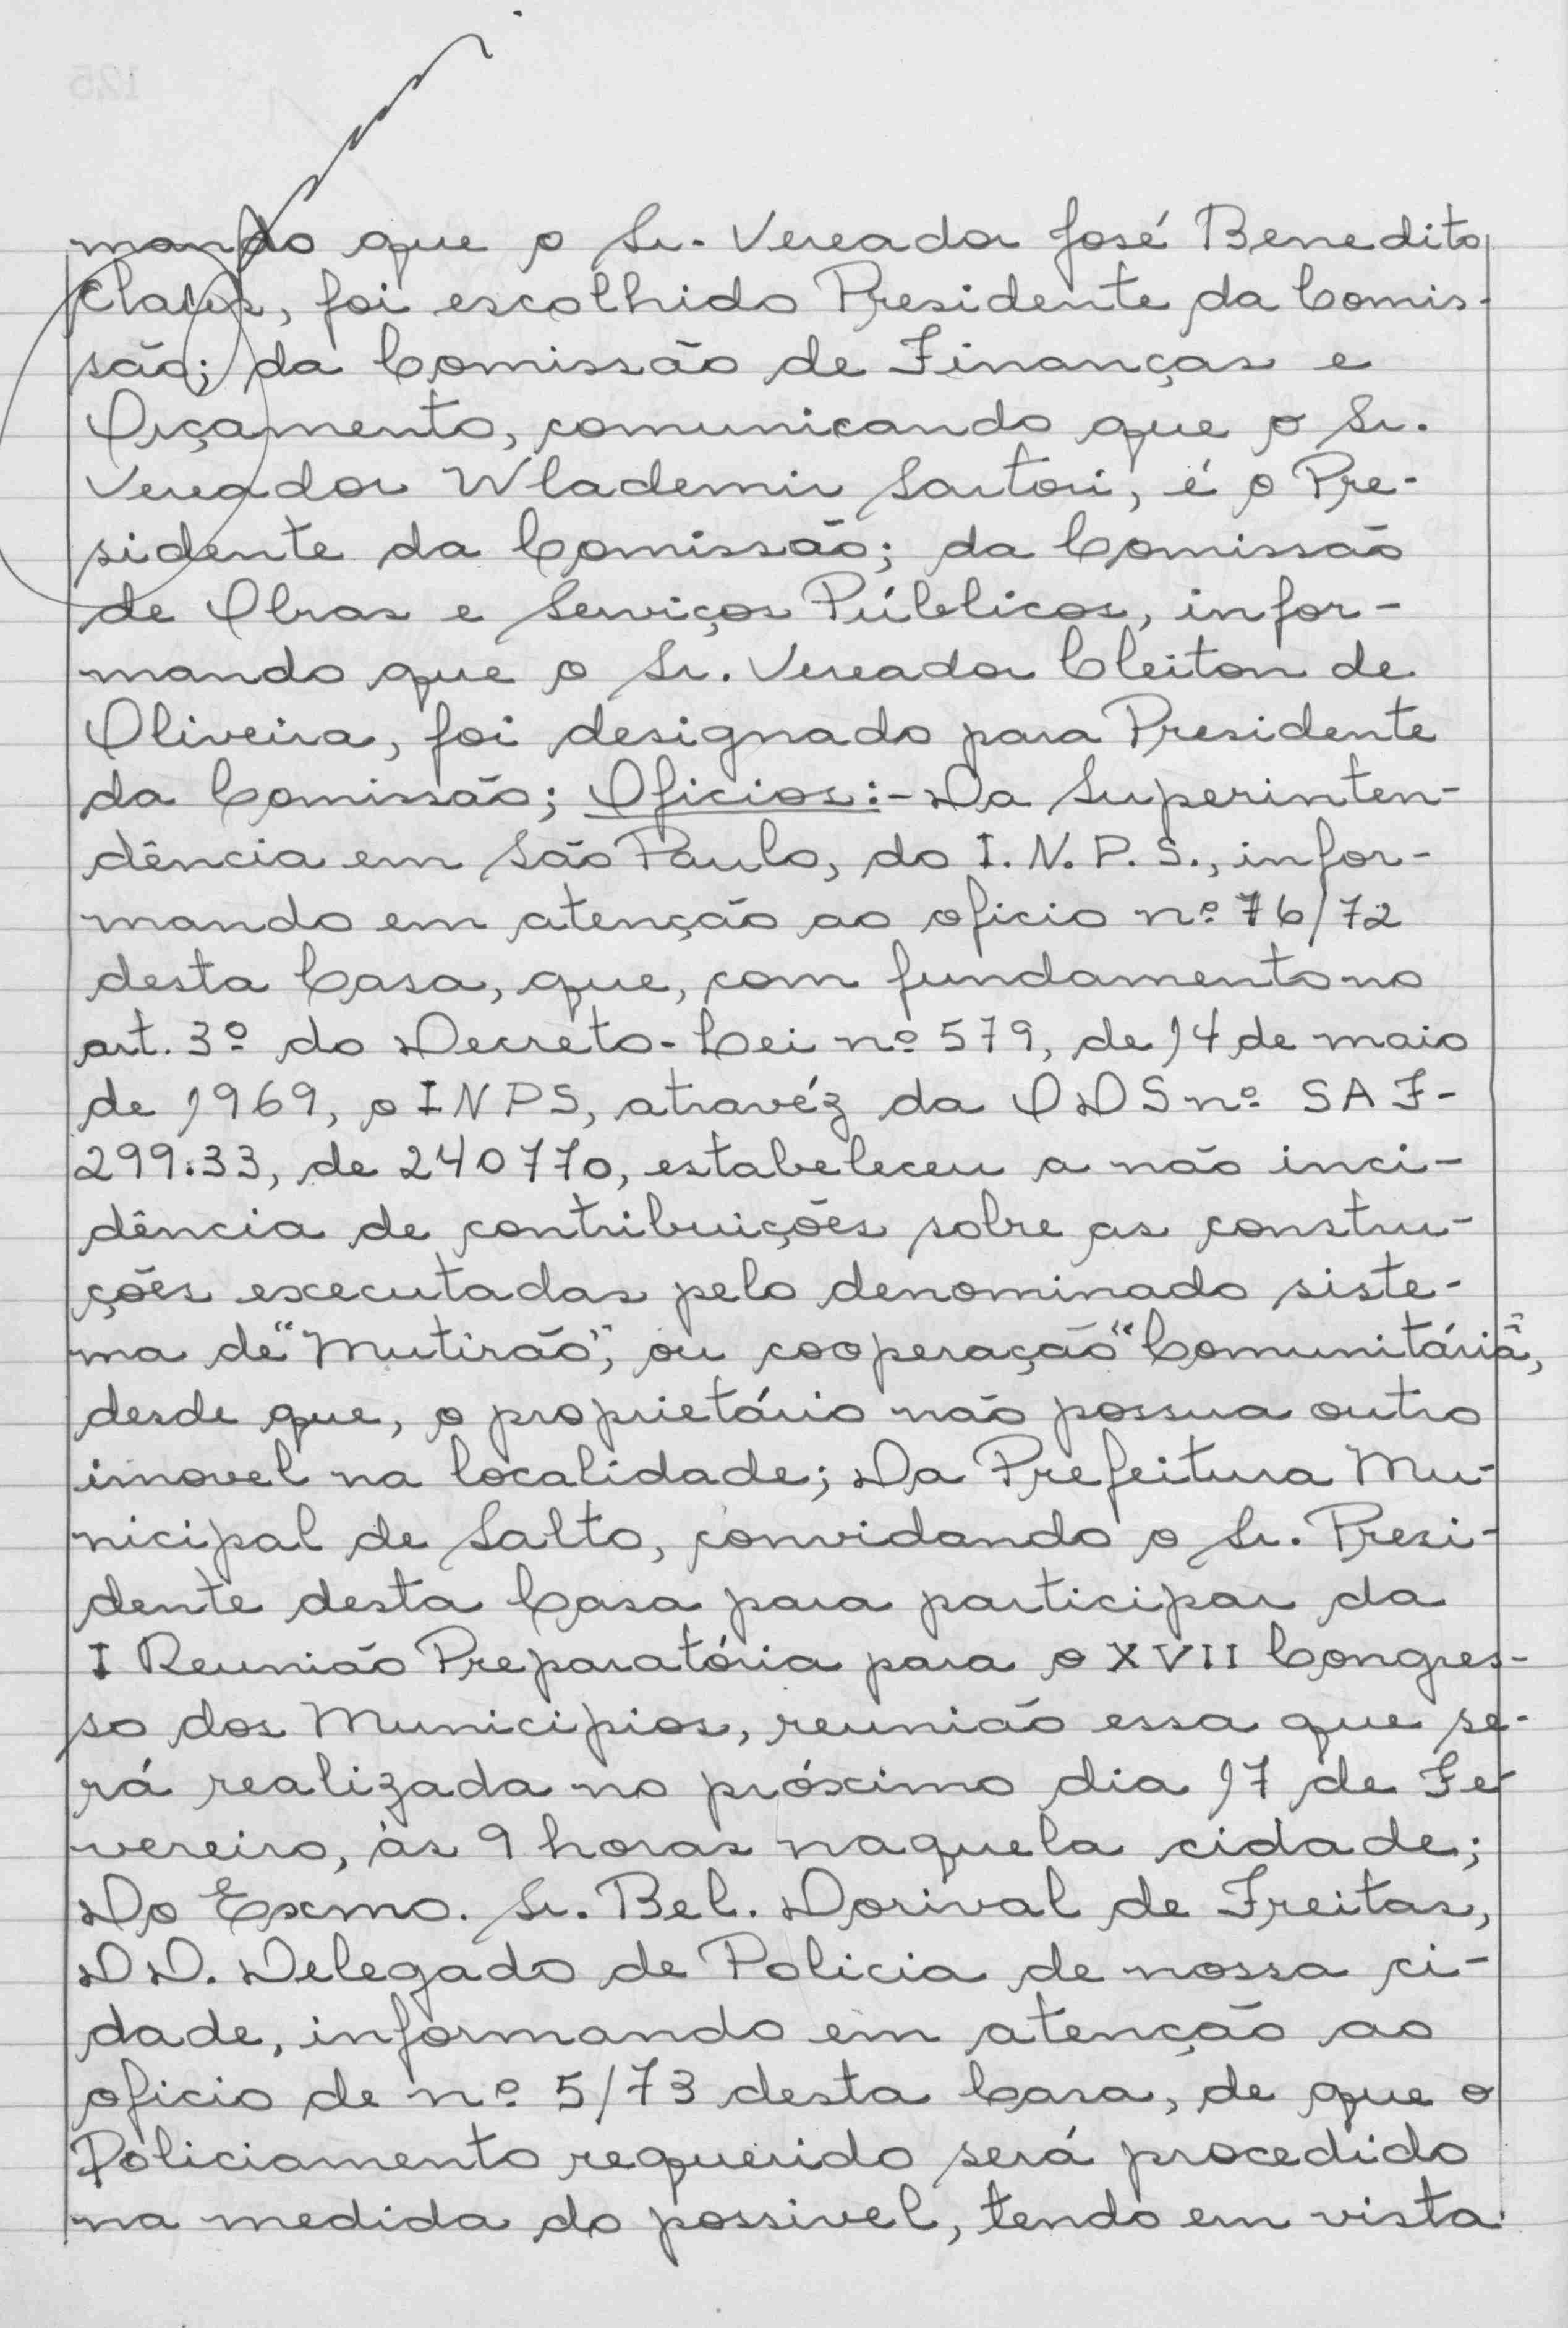 mando que o Sr. Vereador José Benedito
Claus, foi escolhido Presidente da Comis-
são; da Comissão de Finanças e
Orçamento, comunicando que o Sr.
Vereador Wlademir Sartori, é o Pre-
sidente da Comissão; da Comissão
de Obras e Serviços Públicos, infor-
mando que o Sr. Vereador Cleiton de
Oliveira, foi designado para Presidente
da Comissão; Oficios:- Da Superinten-
dência em São Paulo, do I.N.P.S., infor-
mando em atenção ao oficio nº 76/72
desta Casa, que, com fundamento no
art. 3º do Decreto-Lei nº 579, de 14 de maio
de 1969, o INPS, atravéz da ODS nº SAF-
299.33, de 240770, estabeleceu a não inci-
dência de contribuições sobre as constru-
ções executadas pelo denominado siste-
ma de "Mutirão", ou cooperação "Comunitária",
desde que, o proprietário não possua outro
imovel na localidade; Da Prefeitura Mu-
nicipal de Salto, convidando o Sr. Presi-
dente desta Casa para participar da
I Reunião Preparatória para o XVII Congres-
so dos Municipios, reunião essa que se-
rá realizada no próximo dia 17 de Fe-
vereiro, às 9 horas naquela cidade;
Do Exmo. Sr. Bel. Dorival de Freitas,
DD. Delegado de Policia de nossa ci-
dade, informando em atenção ao
oficio de nº 5/73 desta Casa, de que o
Policiamento requerido será procedido
na medida do possivel, tendo em vista